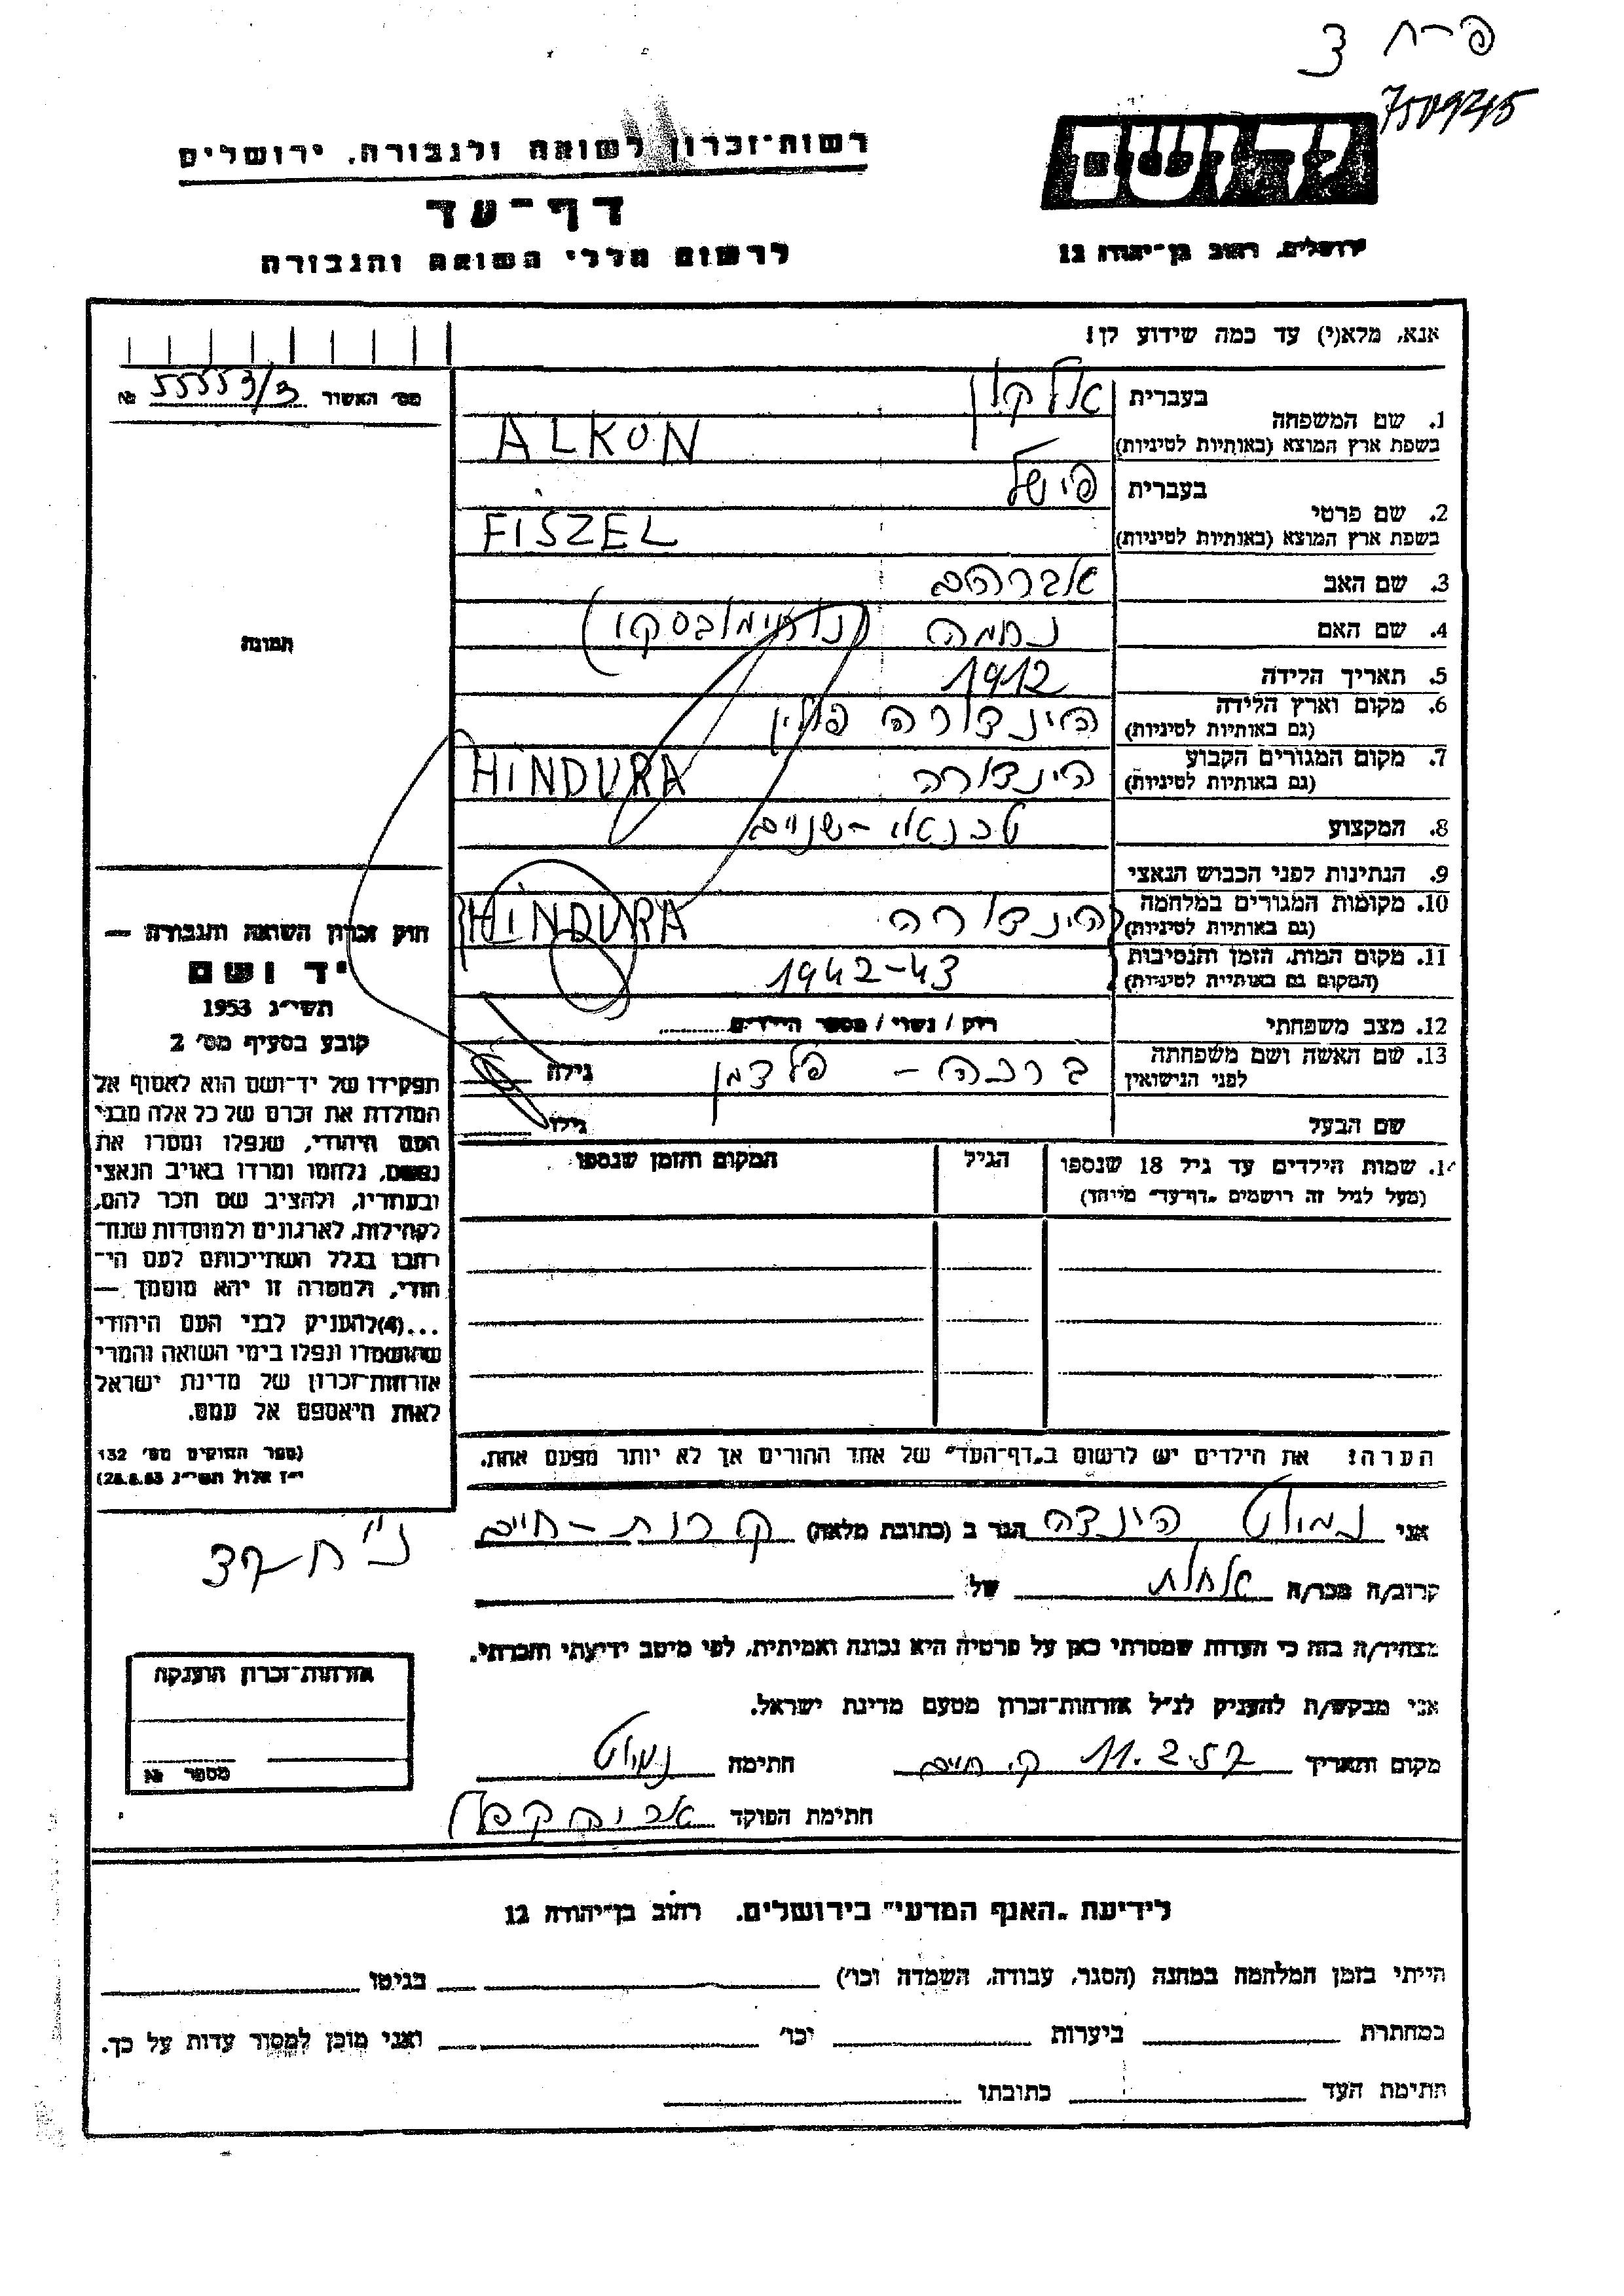 פ-ח 3
יד ושם
רשות־זכרון לשואה ולגבורה, ירושלים
דף־עד
לרשום חללי השואה והגבורה
ירושלים, רחוב בן־יהודה 12
אנא, מלא(י) עד כמה שידוע לך!
מס׳ האשור 55553/3 №
1. שם המשפחה
בעברית אלקון
בשפת ארץ המוצא (באותיות לטיניות) ALKON
2. שם פרטי
בעברית פישל
בשפת ארץ המוצא (באותיות לטיניות) FISZEL
3. שם האב אברהם
4. שם האם נחמה
5. תאריך הלידה 1912
6. מקום וארץ הלידה הינדורה פולין
(גם באותיות לטיניות)
7. מקום המגורים הקבוע הינדורה HINDURA
(גם באותיות לטיניות)
8. המקצוע טכנאי-שניים
9. הנתינות לפני הכבוש הנאצי
10. מקומות המגורים במלחמה הינדורה HINDURA
(גם באותיות לטיניות)
11. מקום המות, הזמן והנסיבות 1942-43
(המקום גם באותיות לטיניות)
12. מצב משפחתי רווק / נשוי / מספר הילדים
13. שם האשה ושם משפחתה ברכה - פלדמן גילה
לפני הנישואין
שם הבעל גילו
14. שמות הילדים עד גיל 18 שנספו הגיל המקום והזמן שנספו
(מעל לגיל זה רושמים „דף־עד״ מיוחד)
תמונה
חוק זכרון השואה והגבורה —
יד ושם
תשי״ג 1953
קובע בסעיף מס׳ 2
תפקידו של יד־ושם הוא לאסוף אל
המולדת את זכרם של כל אלה מבני
העם היהודי, שנפלו ומסרו את
נפשם, נלחמו ומרדו באויב הנאצי
ובעוזריו, ולהציב שם וזכר להם,
לקהילות, לארגונים ולמוסדות שנח־
רבו בגלל השתייכותם לעם הי־
הודי, ולמטרה זו יהא מוסמך —
...(4)להעניק לבני העם היהודי
שהושמדו ונפלו בימי השואה והמרי
אזרחות־זכרון של מדינת ישראל
לאות היאספם אל עמם.
(ספר החוקים מס׳ 132
י״ז אלול תשי״ג 28.8.53)
הערה: את הילדים יש לרשום ב„דף־העד״ של אחד ההורים אך לא יותר מפעם אחת.
אני נמוט הינדה הגר ב (כתובת מלאה) קרית-חיים
קרוב/ה מכר/ה אחות של
מצהיר/ה בזה כי העדות שמסרתי כאן על פרטיה היא נכונה ואמיתית, לפי מיטב ידיעתי והכרתי.
אני מבקש/ת להעניק לנ״ל אזרחות־זכרון מטעם מדינת ישראל.
מקום ותאריך ק. חיים 11.2.57 חתימה נמוט
חתימת הפוקד
אזרחות־זכרון הוענקה
מספר №
לידיעת „האגף המדעי״ בירושלים. רחוב בן־יהודה 12
הייתי בזמן המלחמה במחנה (הסגר, עבודה, השמדה וכו׳) בגיטו
במחתרת ביערות וכו׳ ואני מוכן למסור עדות על כך.
חתימת העד כתובתו